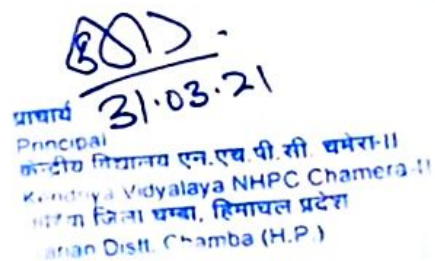 31.03.21
प्राचार्य
Principal
केन्द्रीय विद्यालय एन.एच.पी.सी. चमेरा-II
Kendriya Vidyalaya NHPC Chamera-II
जिला चम्बा, हिमाचल प्रदेश
Distt. Chamba (H.P.)